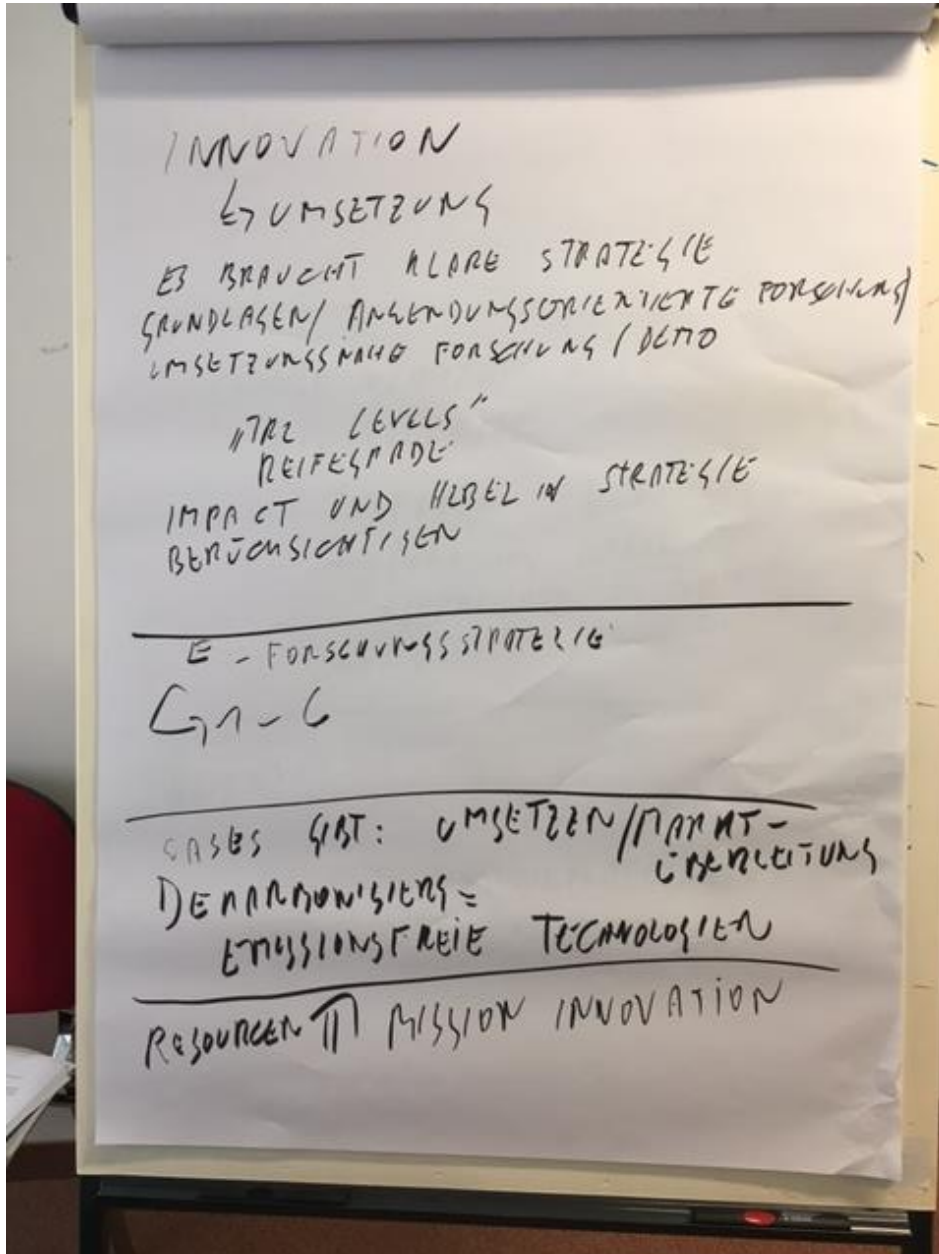 INNOVATION
↳ UMSETZUNG
ES BRAUCHT KLARE STRATEGIE
GRUNDLAGEN/ ANWENDUNGSORIENTIERTE FORSCHUNG/
UMSETZUNGSNAHE FORSCHUNG / DEMO
„TRL LEVELS"
REIFEGRADE
IMPACT UND HEBEL IN STRATEGIE
BERÜCKSICHTIGEN
E - FORSCHUNGSSTRATEGIE
GIBT: UMSETZEN/MARKT-
ÜBERLEITUNG
EMISSIONSFREIE TECHNOLOGIEN
RESOURCEN ⇑ MISSION INNOVATION